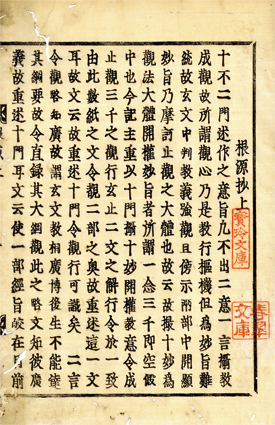 根源抄上
十不二門述作之意旨九不出二意一言攝教
成觀故所謂觀心乃是教行樞機但爲妙旨難
統故玄文中判教義強觀且傍示附部中開顯
妙旨乃摩訶止觀之大體也故云故撮十妙爲
觀法大體開權妙旨者所謂一念三千即空假
中也今記主重以十門撮十妙開權教意令成
止觀三千之觀行玄止二文之解行令於一致
由此數紙之文令觀二部之奧故重述這一文
耳故文云故重述十門令觀行可識矣二言
令觀略知廣故謂玄文教相廣博後生不能達
其綱要故今直錄其大綱觀此之略文知彼廣
義故重述十門耳文云使一部經旨皎在目前
寶玲文庫
文庫